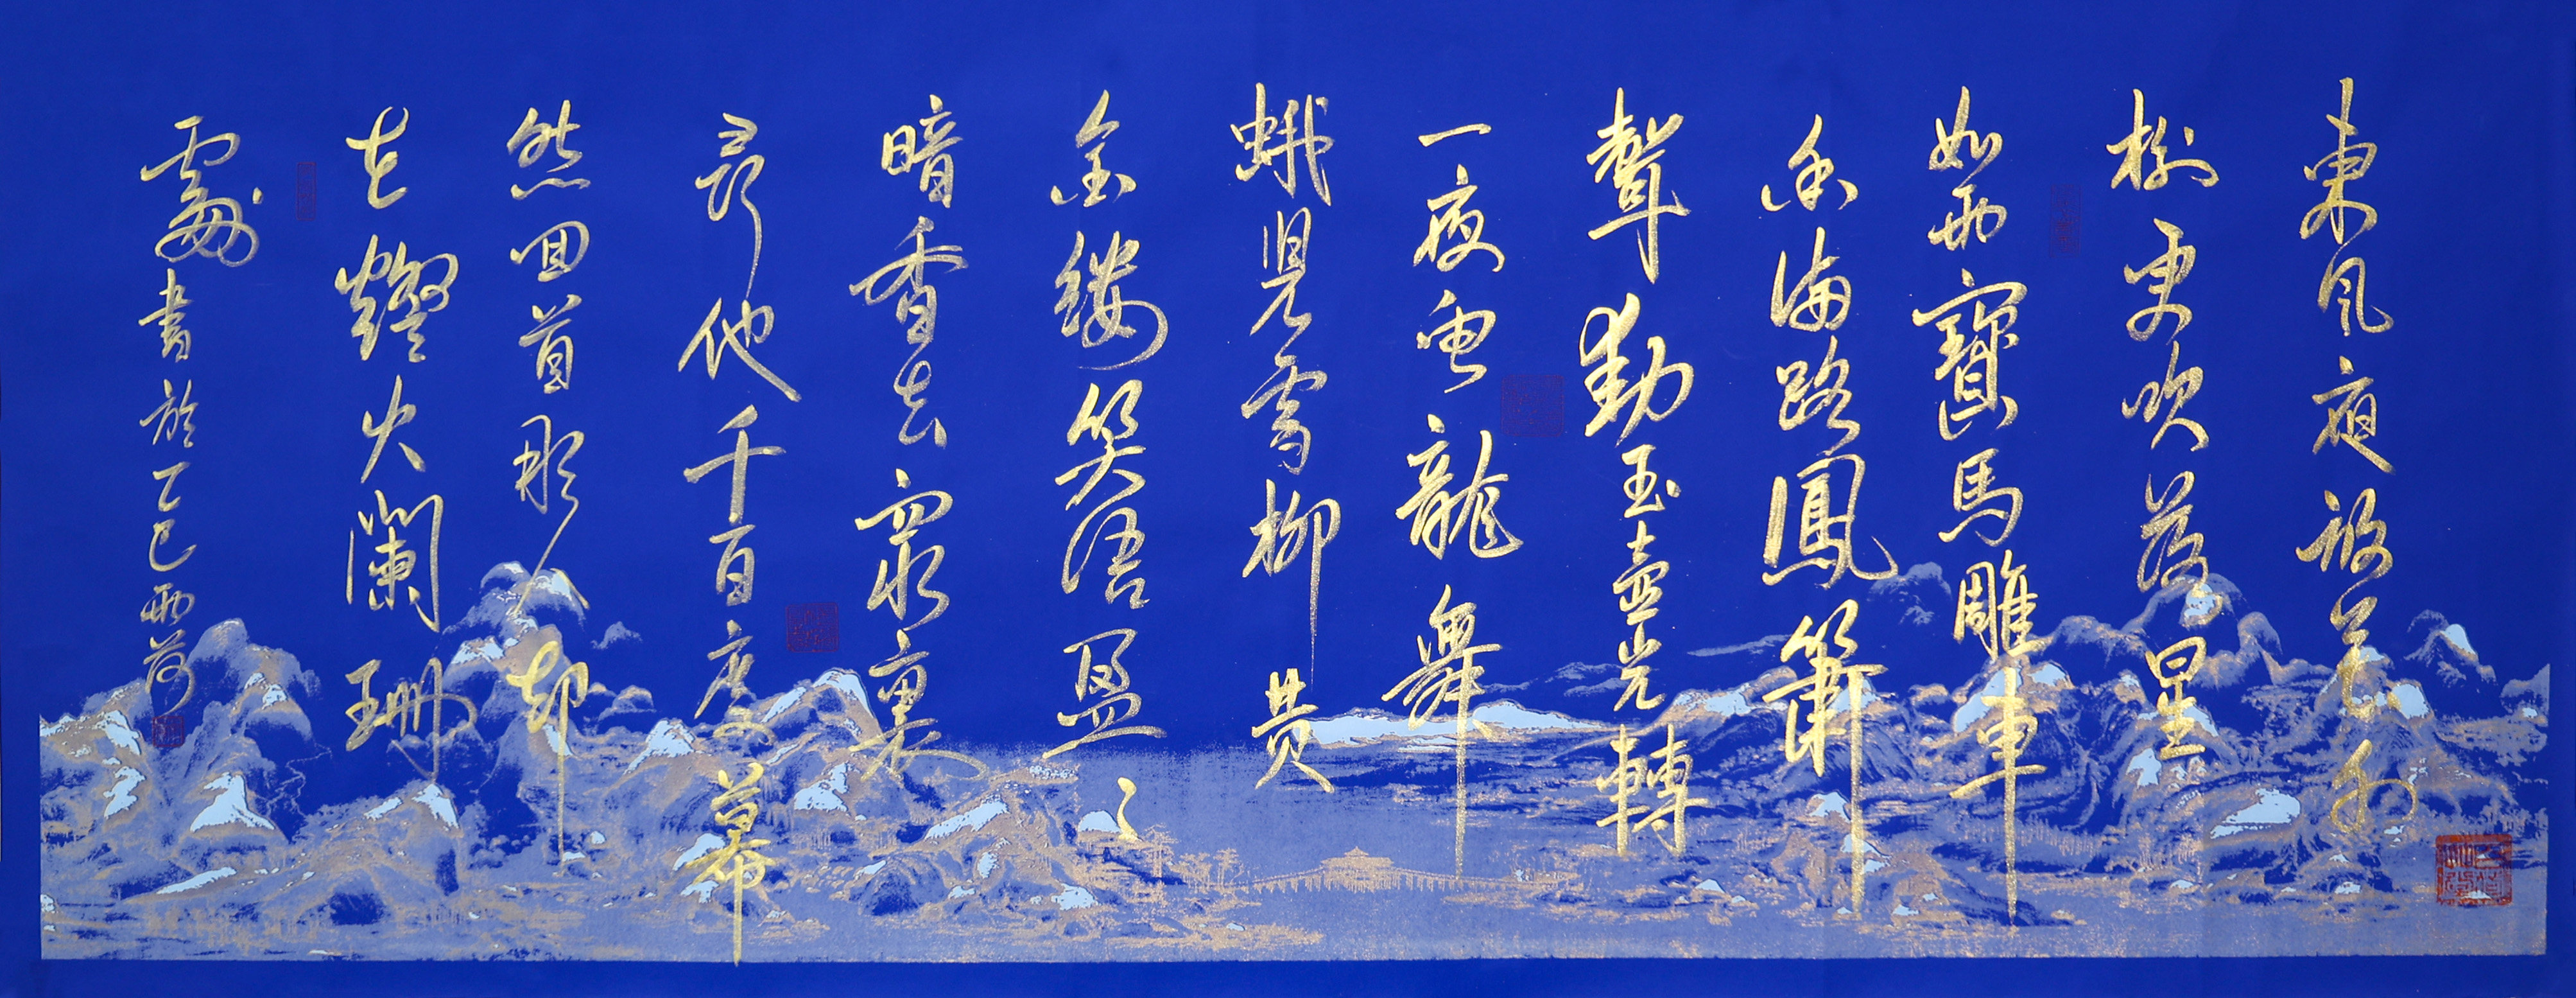 東風夜放花千
樹更吹落星
如雨寶馬雕車
香滿路鳳簫
聲動玉壺光轉
一夜魚龍舞
蛾兒雪柳黃
金縷笑語盈
暗香去眾裏
尋他千百度驀
然回首那人却
在燈火闌珊
處書於乙巳雨荷